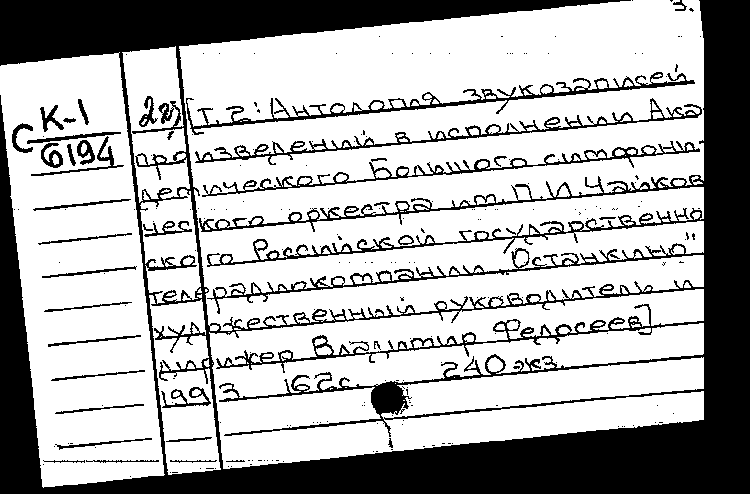 3.
К-1 22) [т. 2: Антология звукозаписей
С 6194 произведений в исполнении Ака-
демического Большого симфони-
ческого оркестра им. П.И. Чайков
ского Российской государственно
телерадиокомпании „Останкино"
художественный руководитель и
дирижер Владимир Федосеев].
1993. 162с. 240 экз.